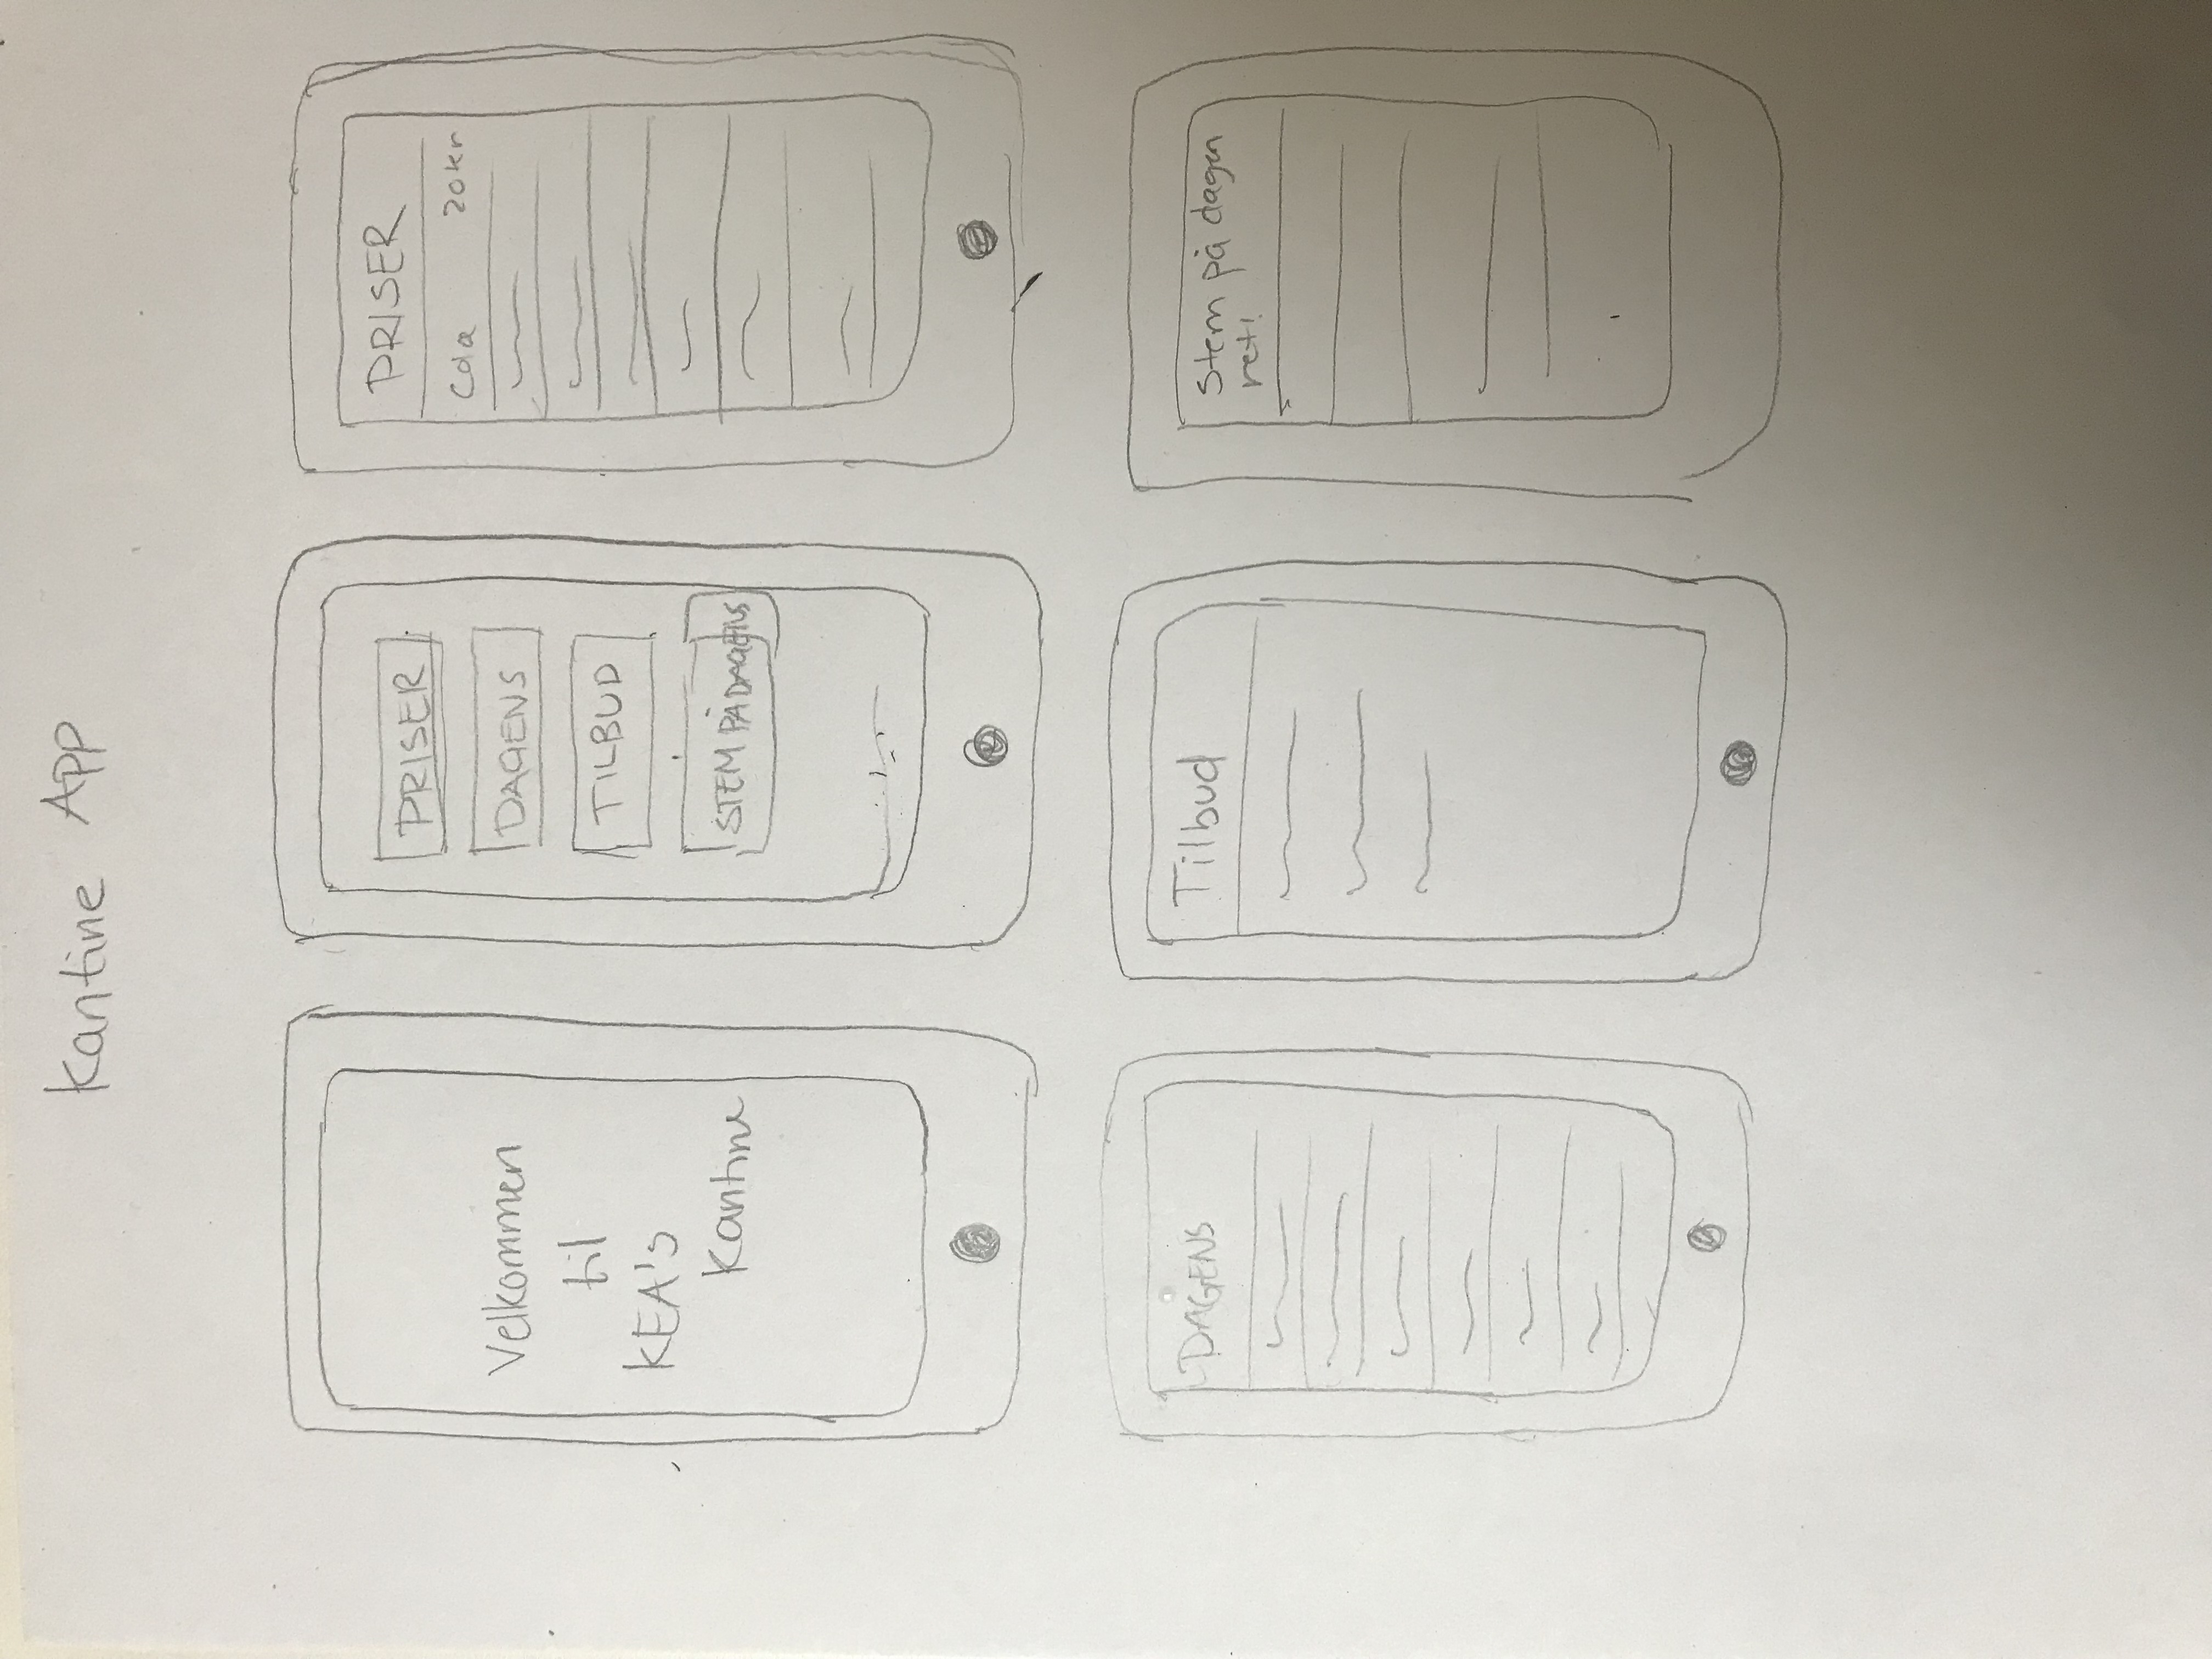 Kantine App
Velkommen
til
KEA's
Kantine
PRISER
DAGENS
TILBUD
STEM PÅ DAGENS
PRISER
Cola 20 kr
DAGENS
Tilbud
Stem på dagen
ret!